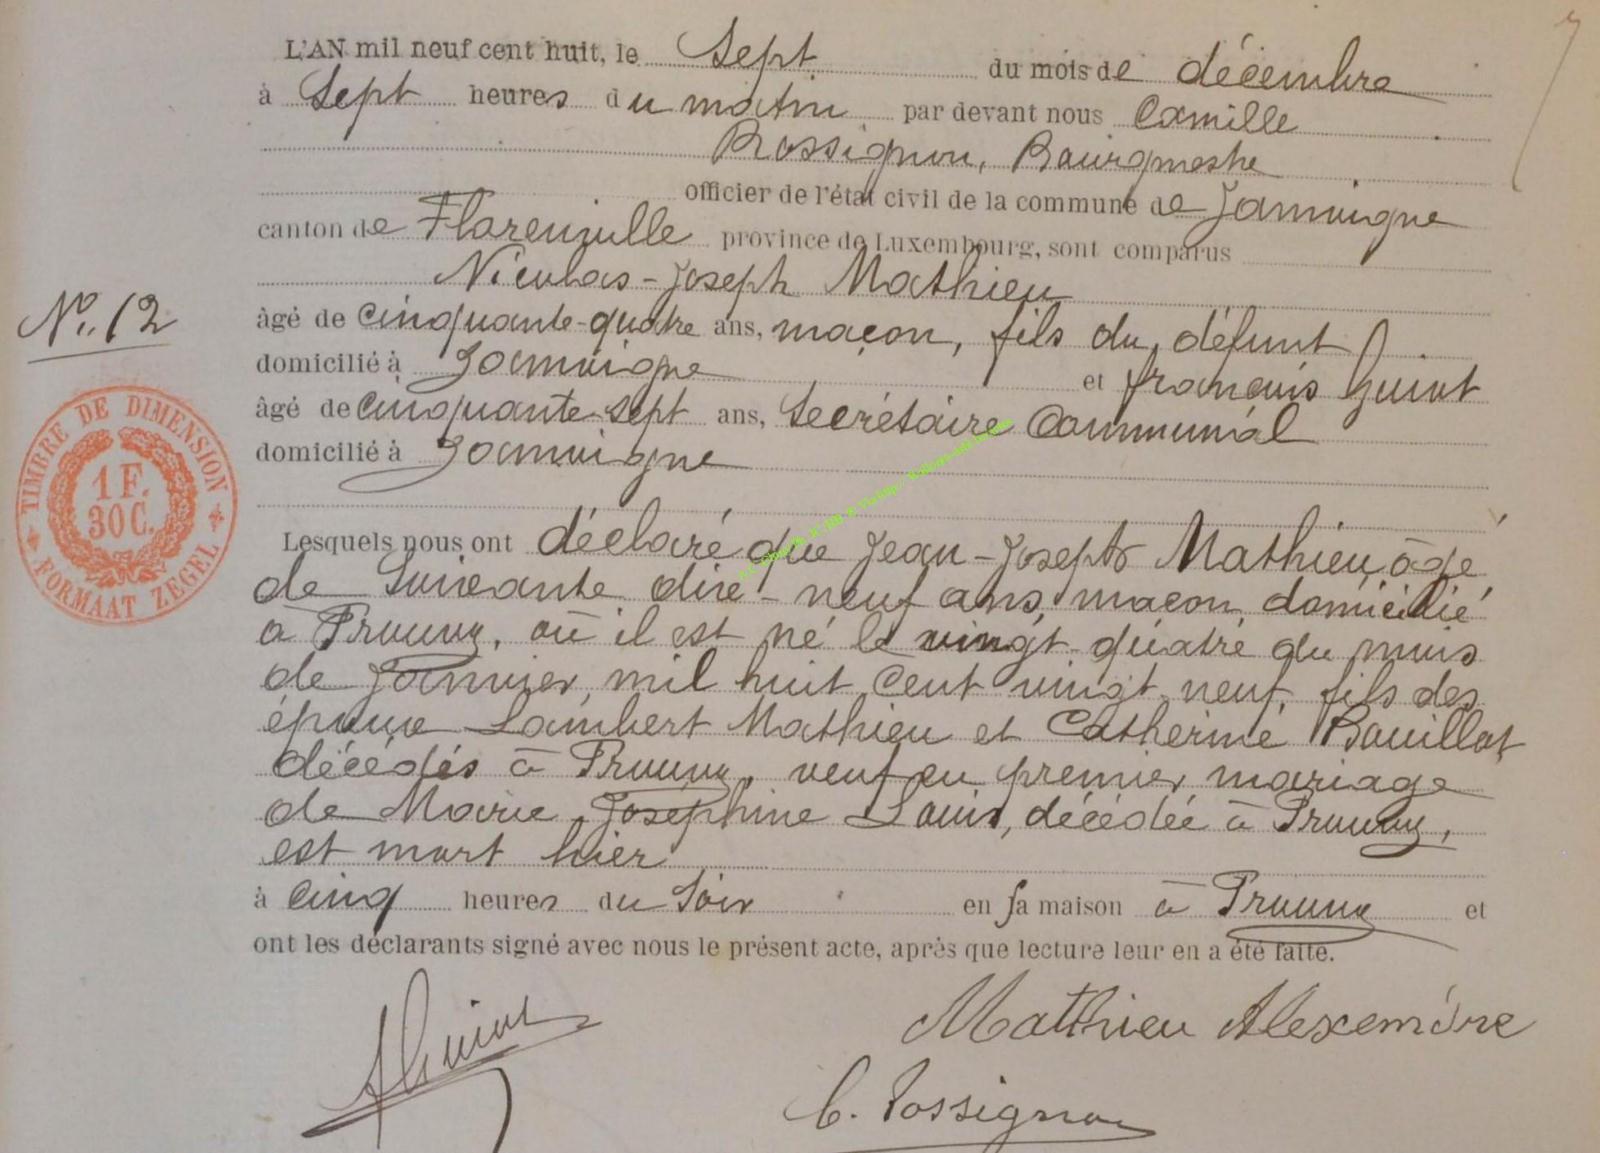 L'AN mil neuf cent huit, le Sept du mois de décembre
à Sept heures du matin par devant nous Camille
Rossignon, Bourgmestre
officier de l'état civil de la commune de Jamoigne
canton de Florenville province de Luxembourg, sont comparus
Nicolas-Joseph Mathieu
âgé de cinquante-quatre ans, maçon, fils du défunt
domicilié à Jamoigne et françois Guiot
âgé de cinquante-sept ans, Secrétaire Communal
domicilié à Jamoigne
N° 12
TIMBRE DE DIMENSION
1 F.
30 C.
FORMAAT ZEGEL
Lesquels nous ont déclaré que Jean-Joseph Mathieu âgé
de Soixante dix-neuf ans maçon domicilié
à Prouvy, où il est né le vingt-quatre du mois
de Janvier mil huit Cent vingt neuf, fils des
époux Lambert Mathieu et Catherine Bouillot
décédés à Prouvy, veuf en premier mariage
de Marie Joséphine Louis, décédée à Prouvy,
est mort hier
à Cinq heures du Soir en sa maison à Prouvy et
ont les déclarants signé avec nous le présent acte, après que lecture leur en a été faite.
Mathieu Alexandre
C. Rossignon